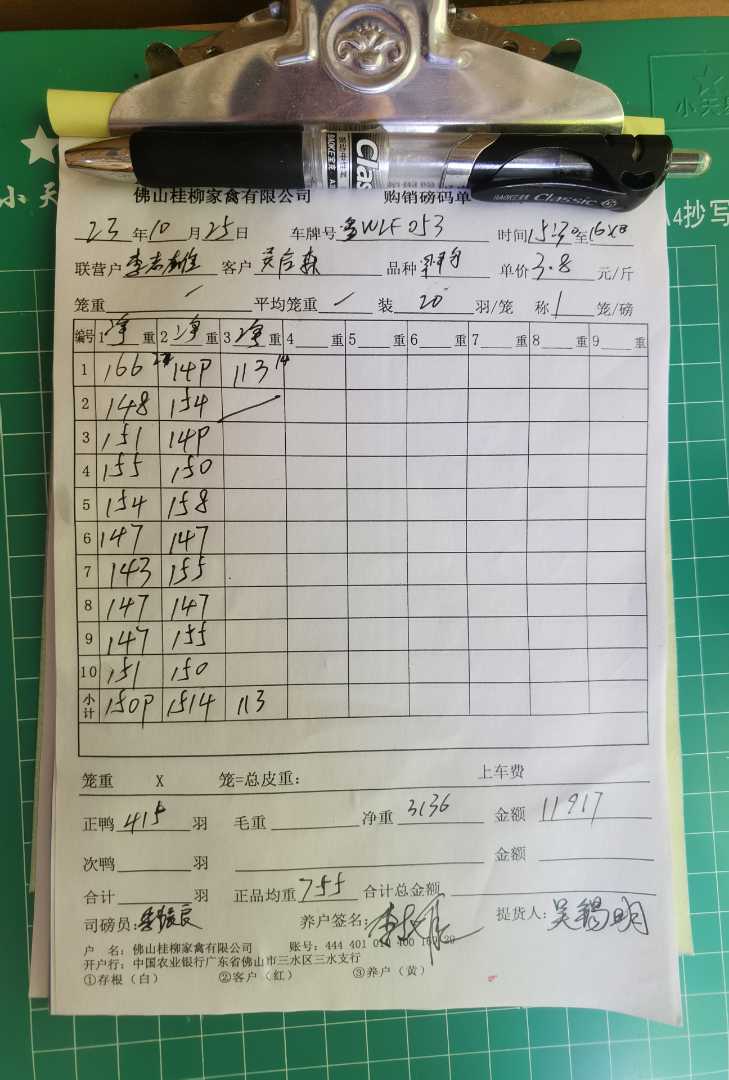 小天
A4抄写
佛山桂柳家禽有限公司 购销磅码单
23年10月25日 车牌号粤WLF053 时间15:30至16:
联营户 李志雄 客户 品种 单价3.8元/斤
笼重 / 平均笼重 / 装20羽/笼 称1笼/磅
编号 1净重 2净重 3净重 4重 5重 6重 7重 8重 9重
1 166 149 113 14
2 148 154
3 151 149
4 155 150
5 154 158
6 147 147
7 143 155
8 147 147
9 147 155
10 151 150
小计 1509 1514 113
笼重 X 笼=总皮重: 上车费
正鸭 415 羽 毛重 净重 3136 金额 11917
次鸭 羽 金额
合计 羽 正品均重 755 合计总金额
司磅员: 养户签名: 提货人:吴锡明
户 名:佛山桂柳家禽有限公司 账号:444 401 010 400
开户行:中国农业银行广东省佛山市三水区三水支行
①存根(白) ②客户(红) ③养户(黄)